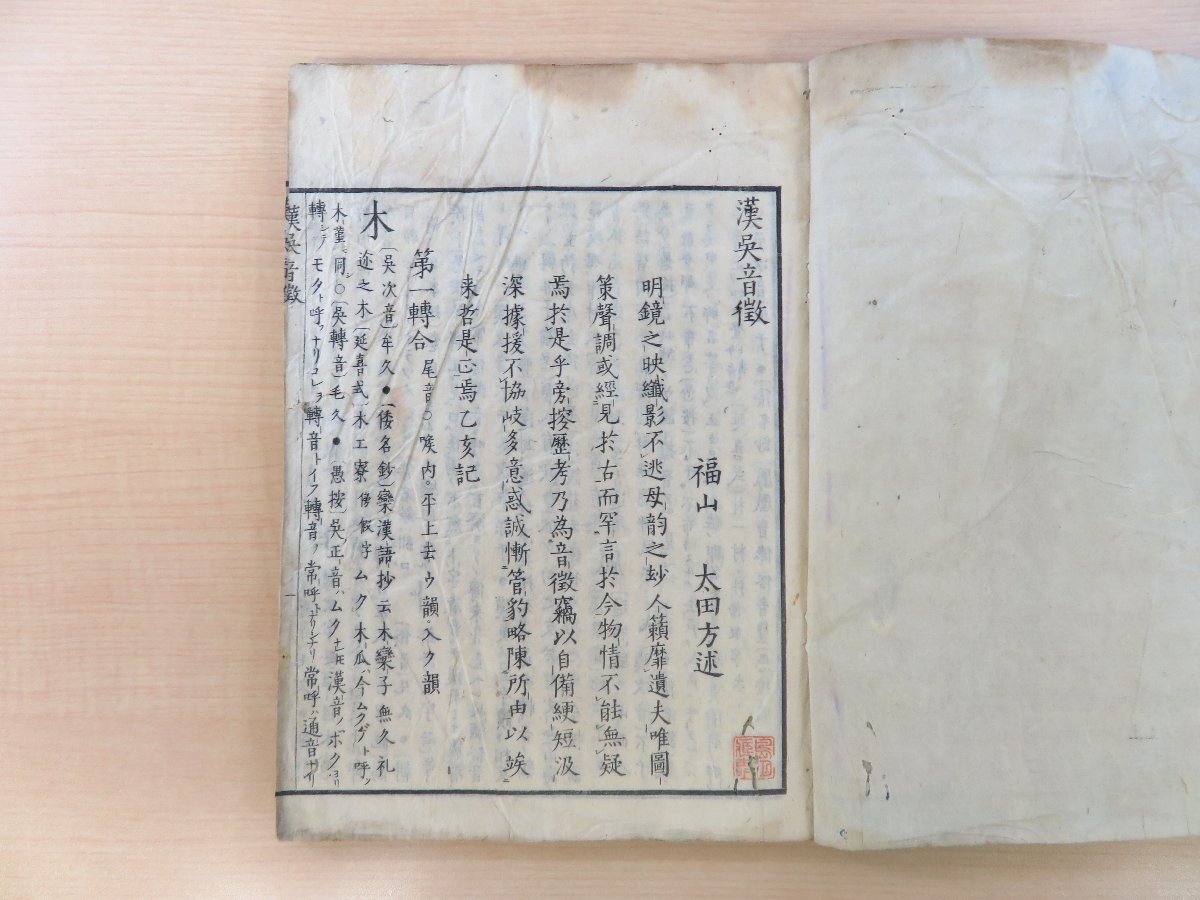 漢吳音徵
福山 太田方述
明鏡之映纖影不逃母韵之玅人籟靡遺夫唯圖
策聲調或經見於古而罕言於今物情不能無疑
焉於是乎旁按歷考乃為音徵竊以自備綆短汲
深據援不協岐多意惑誠慚管豹略陳所由以竢
来哲是正焉乙亥記
第一轉合 尾音○喉内。平上去ウ韻。入ク韻
木 〔吳次音〕牟久●〔倭名鈔〕欒漢語抄云木欒子無久礼
迩之木〔延喜式〕木工寮傍假字ムク木瓜ハ今ムクゲト呼ノ
木菫ニ同シ○〔吳轉音〕毛久●〔愚按〕吳正音ハムクナレ𪜈漢音ノボクヨリ
轉シテモクト呼フナリコレヲ轉音トイフ轉音ノ常呼トナリシナリ常呼ハ通音ナリ
漢吳音徵